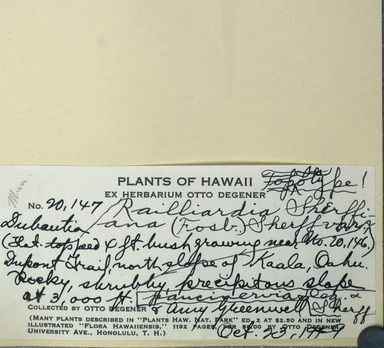 PLANTS OF HAWAII
Topotype!
EX HERBARIUM OTTO DEGENER
No. 20,147 Railliardia Sherffi-
Dubautia ana (Fosb.) Sherff var.
(Flat-topped 4 ft. bush growing near No. 20,146)
Dupont Trail, north slope of Kaala, Oahu.
Rocky, shrubby, precipitous slope
at 3,000 ft.
COLLECTED BY OTTO DEGENER & Amy Greenwell
(MANY PLANTS DESCRIBED IN "PLANTS HAW. NAT. PARK" ED. 2 AT $2.50 AND IN NEW
ILLUSTRATED "FLORA HAWAIIENSIS," 1192 PAGES, FOR BY OTTO DEGENER
UNIVERSITY AVE., HONOLULU, T. H.) Oct. 23,